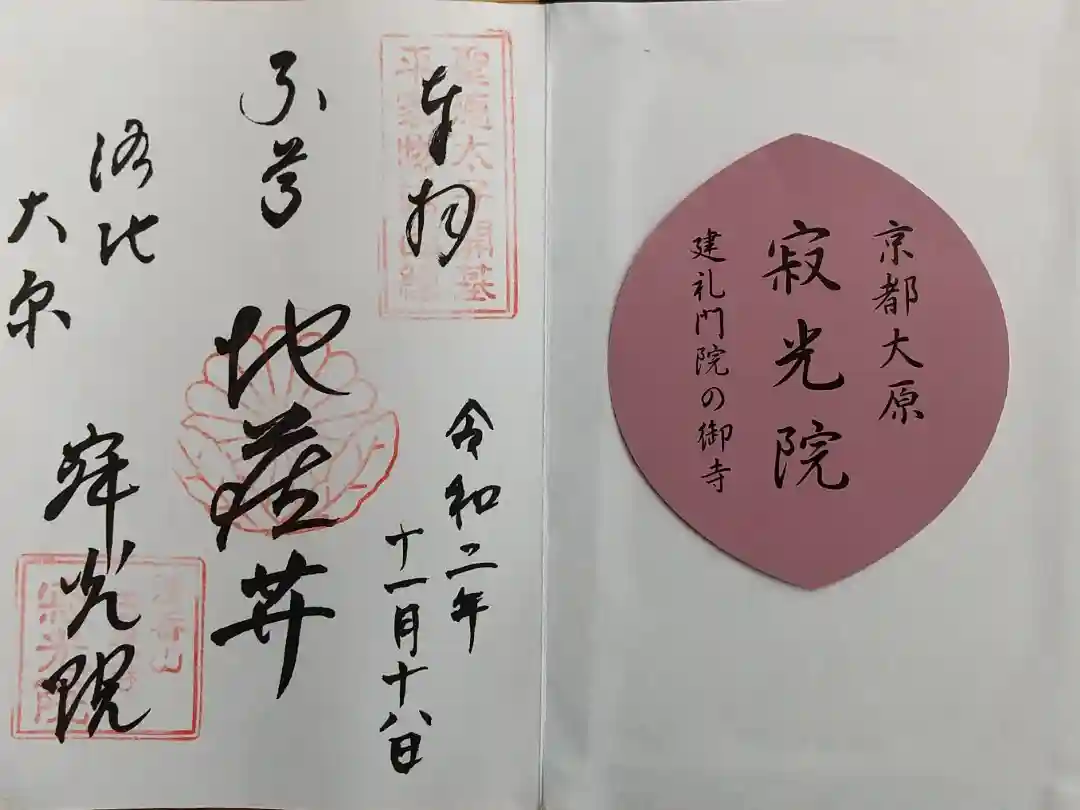 京都大原
寂光院
建礼門院の御寺
奉拝
聖徳太子開基
平家物語
令和二年
十一月十八日
地蔵𦬇
洛北
大原
寂光院
清香山
寂光院